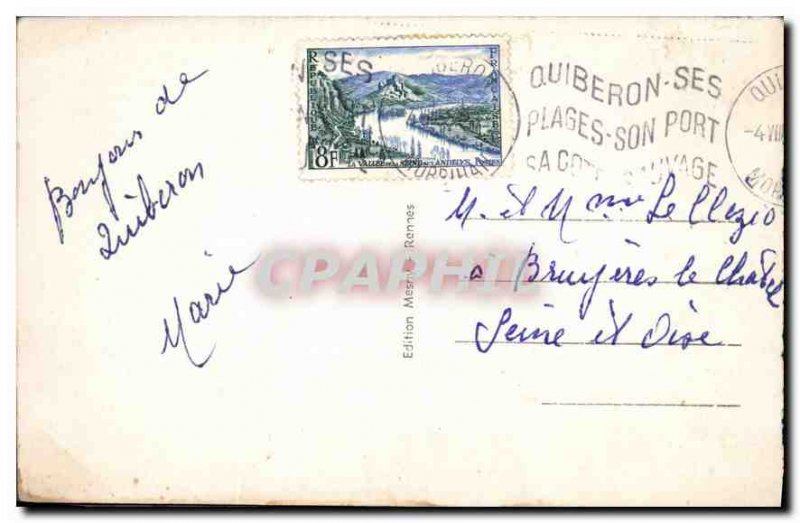 Bonjour de
Quiberon
Marie
RÉPUBLIQUE
FRANÇAISE
8F
LA VALLÉE DE LA SEINE AUX ANDELYS
POSTES
SES
MORBIHAN
QUIBERON-SES
PLAGES-SON PORT
SA COTE SAUVAGE
QUI
-4 VIII
MOR
M. et Mme Le Clezio
a Bruyères le Chatel
Seine et Oise
Edition Rennes
CPAPHIL